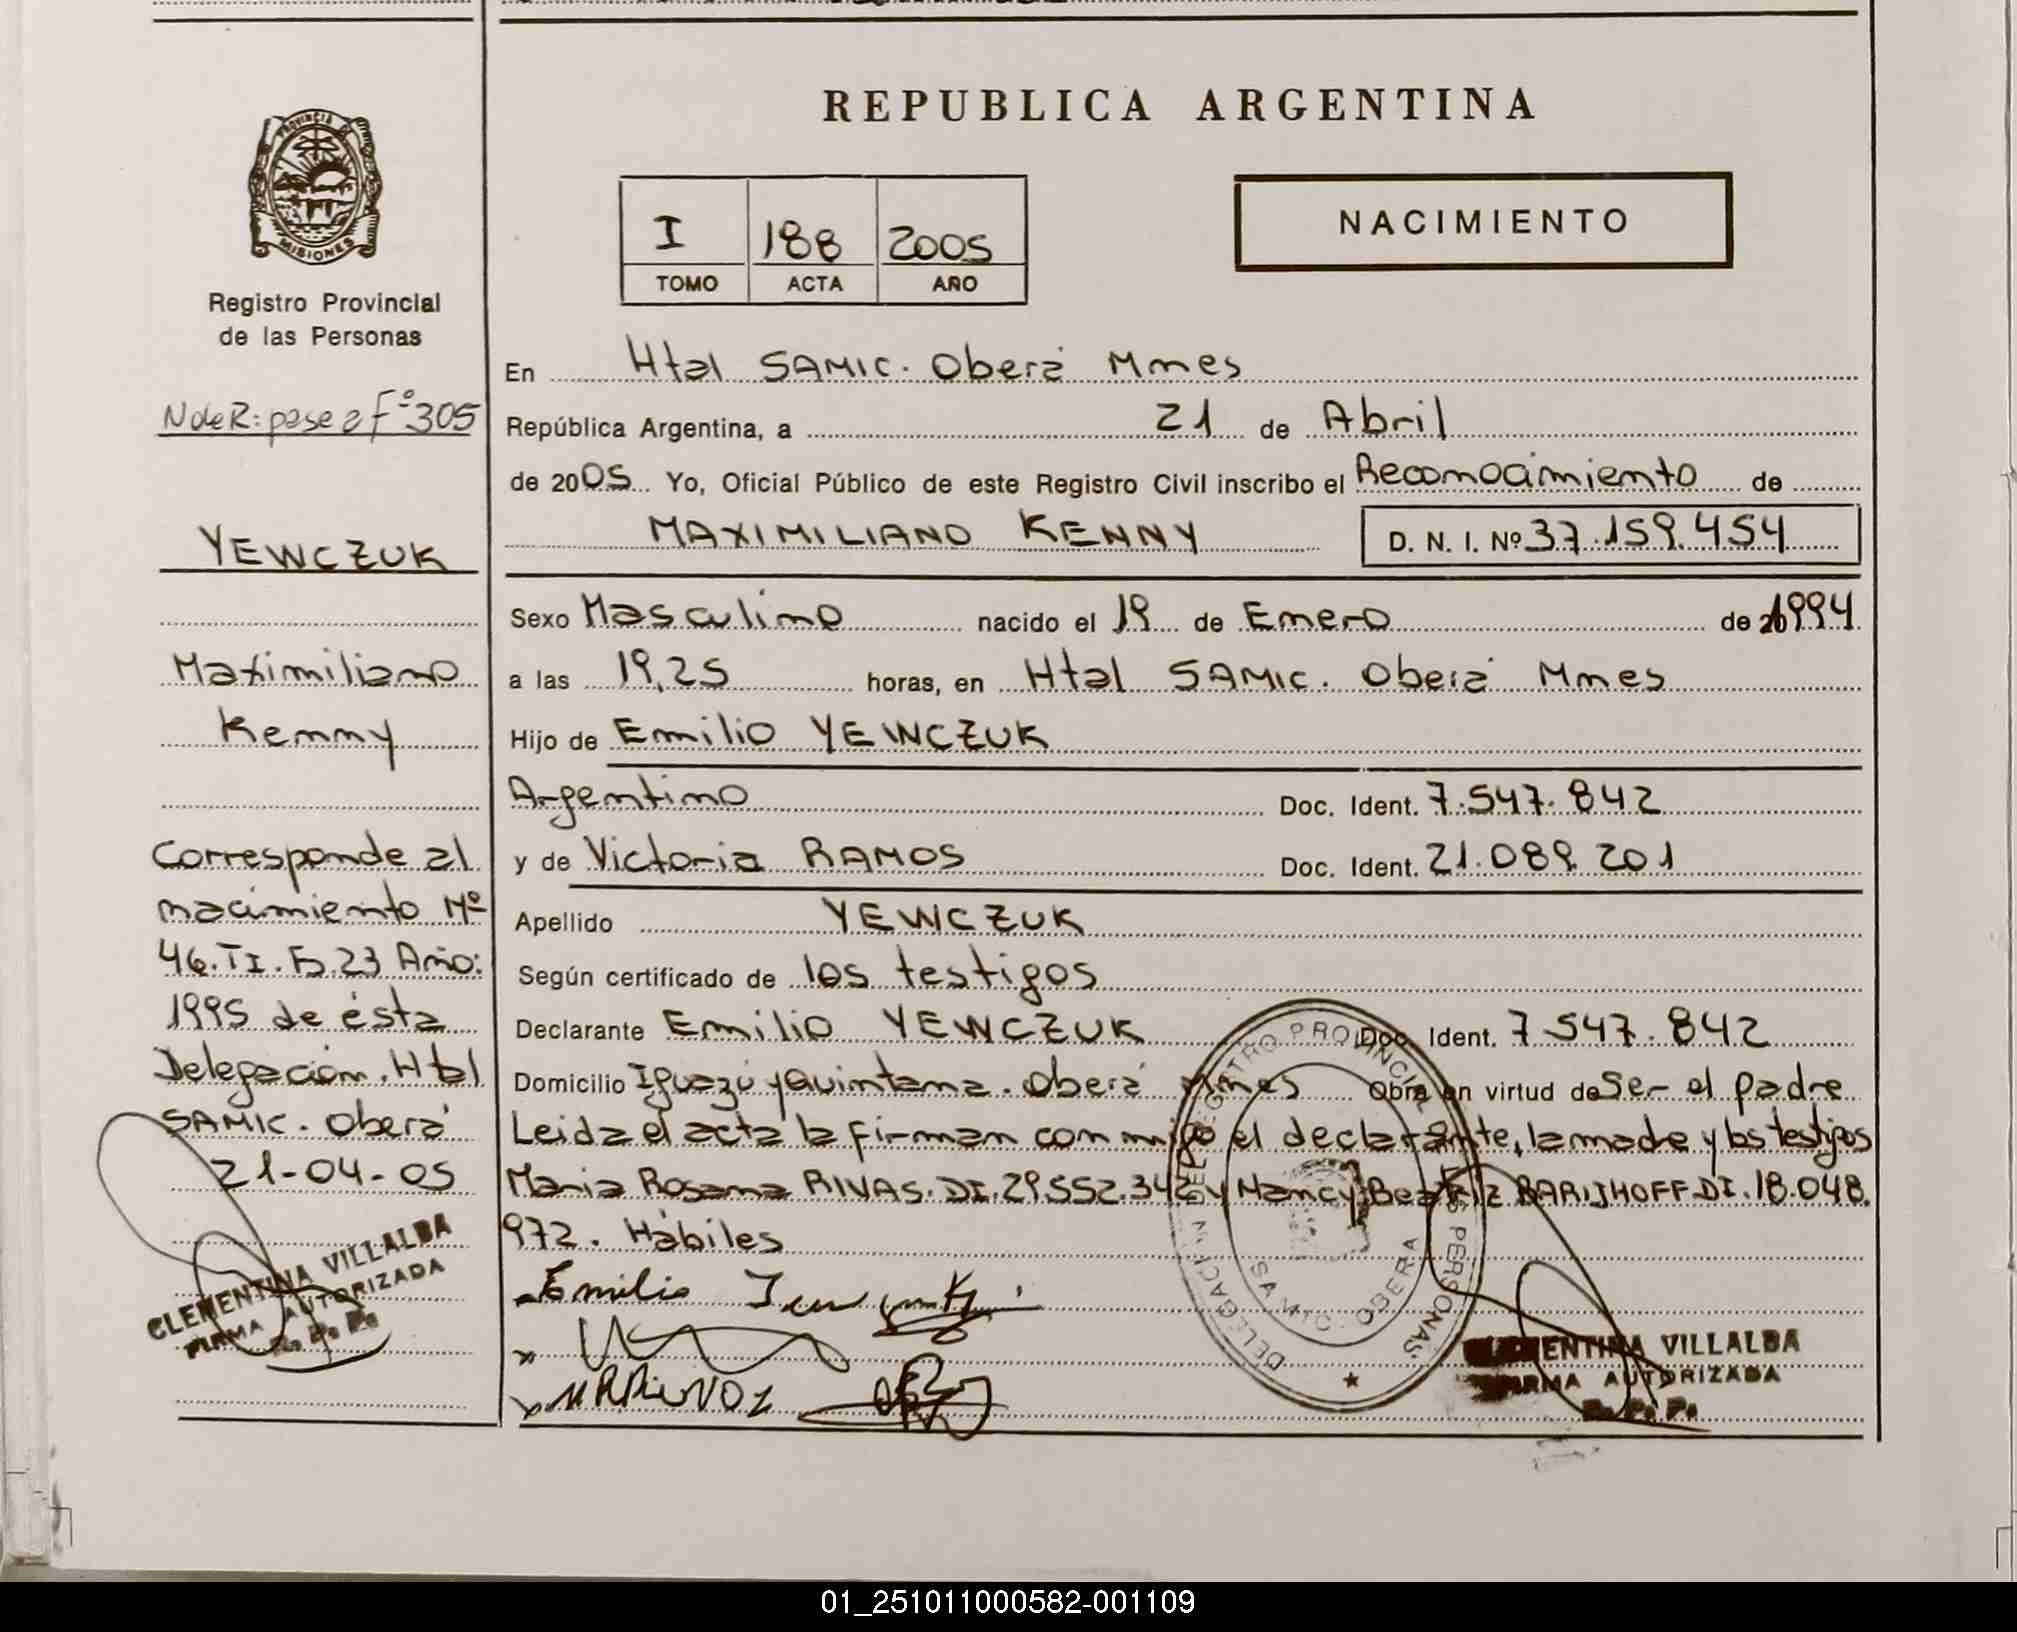 REPUBLICA ARGENTINA
PROVINCIA DE
MISIONES
Registro Provincial
de las Personas
N de R: pase a Fº 305
YEWCZUK
Maximiliano
Kenny
Corresponde al
nacimiento Nº
46. TI. F. 23 Año:
1995 de ésta
Delegación. Htal
SAMIC. Oberá
21-04-05
CLEMENTINA VILLALBA
FIRMA AUTORIZADA
R. P. P.
I 188 2005
TOMO ACTA AÑO
NACIMIENTO
En Htal SAMIC. Oberá Mnes
República Argentina, a 21 de Abril
de 2005 Yo, Oficial Público de este Registro Civil inscribo el Reconocimiento de
MAXIMILIANO KENNY D. N. I. Nº 37.159.454
Sexo Masculino nacido el 19 de Enero de 1994
a las 19,25 horas, en Htal SAMIC. Oberá Mnes
Hijo de Emilio YEWCZUK
Argentino Doc. Ident. 7.547.842
y de Victoria RAMOS Doc. Ident. 21.089.201
Apellido YEWCZUK
Según certificado de los testigos
Declarante Emilio YEWCZUK Doc. Ident. 7.547.842
Domicilio Iguazú y Quintana. Oberá Mnes Obra en virtud de Ser el padre
Leida el acta la firman conmigo el declarante, la madre y los testigos
Maria Rosana RIVAS. DI. 29.552.342 y Nancy Beatriz BARIJHOFF DI. 18.048.
972. Hábiles
Emilio
DELEGACION DEL REGISTRO PROVINCIAL DE LAS PERSONAS
SAMIC - OBERA
CLEMENTINA VILLALBA
FIRMA AUTORIZADA
R. P. P.
01_251011000582-001109